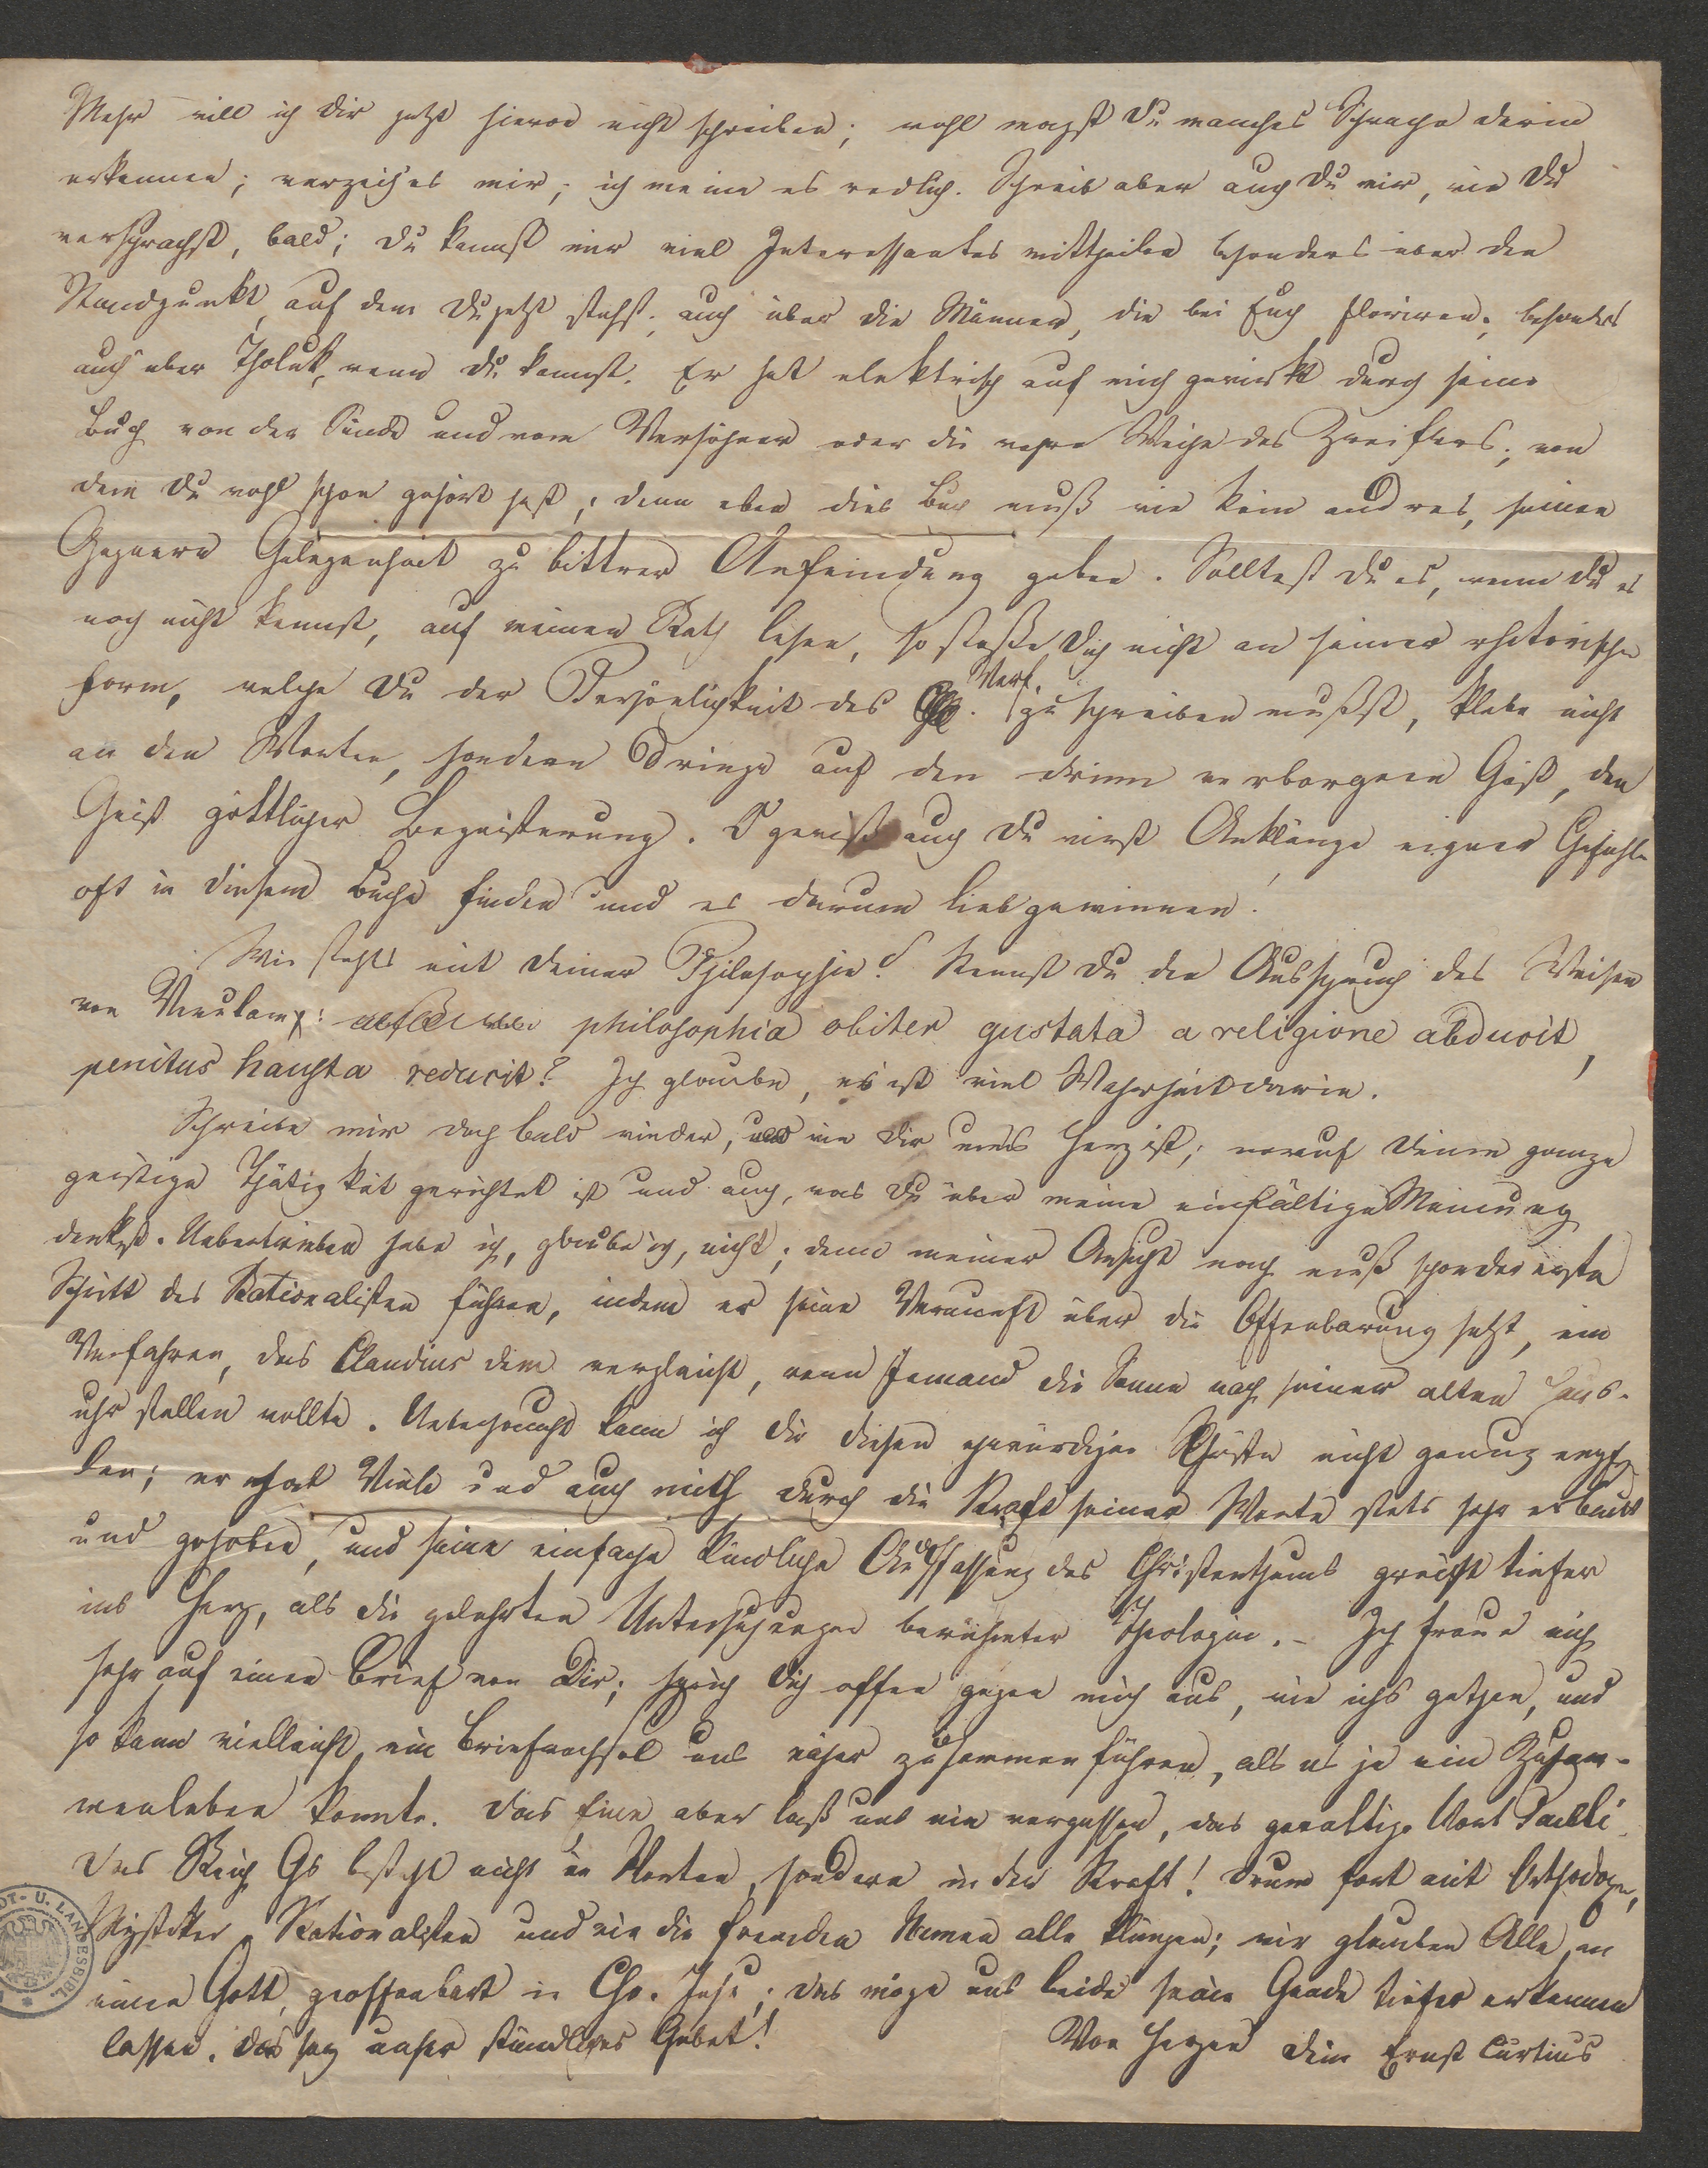 Mehr will ich Dir jetzt hievon nicht schreiben; wohl magst Du manches Schwache darin
erkennen; verzeih es mir; ich meine es redlich. Schreib aber auch Du mir, wie Du
versprachst, bald; Du kannst mir viel Interessantes mittheilen besonders über den
Standpunkt, auf dem Du jetzt stehst, auch über die Männer, die bei Euch floriren, besonders
auch über Tholuk, wenn Du kannst. Er hat elektrisch auf mich gewirkt durch seine
Buch von der Sünde und vom Versöhner oder die wahre Weihe des Zweiflers, von
dem Du wohl schon gehört hast; denn eben dies Buch muß wie kein andres, seinen
Gegnern Gelegenheit zu bittrer Anfeindung geben. Solltest Du es, wenn Du es
noch nicht kennst, auf meinen Rath lesen, so stoße Dich nicht an seiner rhetorischen
Form, welche Du der Persönlichkeit des Verf. zuschreiben mußt, klebe nicht
an den Worten, sondern dringe auf den drinn verborgnen Geist, den
Geist göttlicher Begeisterung. O gewiß auch Du wirst Anklänge eigner Gefühle
oft in diesem Buche finden und es darum liebgewinnen.
Wie stehts mit Deiner Philosophie? Kennst Du den Ausspruch des Weisen
von Verulam: philosophia obiter gustata a religione abducit,
penitus hausta reducit? Ich glaube, es ist viel Wahrheit darin.
Schreibe mir doch bald wieder, wie Dir ums Herz ist; worauf Deine ganze
geistige Thätigkeit gerichtet ist und auch, was Du über meine einfältige Meinung
denkst. Uebertrieben habe ich, glaube ich, nicht; denn meiner Ansicht nach muß schon der erste
Schritt des Rationalisten führen, indem er seine Vernunft über die Offenbarung setzt, ein
Verfahren, das Claudius dem vergleicht, wenn Jemand die Sonne nach seiner alten Haus-
uhr stellen wollte. Ueberhaupt kann ich Dir diesen ehrwürdigen Christen nicht genug empfeh
len; er hat Viele und auch mich durch die Kraft seiner Worte stets sehr erbaut
und gehoben, und seine einfache kindliche Auffassung des Christenthums greift tiefer
ins Herz, als die gelehrten Untersuchungen berühmter Theologen. – Ich freue mich
sehr auf einen Brief von Dir; sprich Dich offen gegen mich aus, wie ichs gethan, und
so kann vielleicht ein Briefwechsel uns näher zusammen führen, als es je ein Zusam-
menleben konnte. Das Eine aber laß uns nie vergessen, das gewaltige Wort Paulli
Das Reich Gs besteht nicht in Worten, sondern in der Kraft! Drum fort mit Orthodoxen,
Mystiker, Rationalisten und wie die fremden Namen alle klingen; wir glauben Alle an
einen Gott, geoffenbart in Chr. Jesu; das möge uns beide seine Gnade tiefer erkennen
lassen. Das sey unser stündliches Gebet!
Von Herzen Dein Ernst Curtius
DT- U. LANDESBIBL.